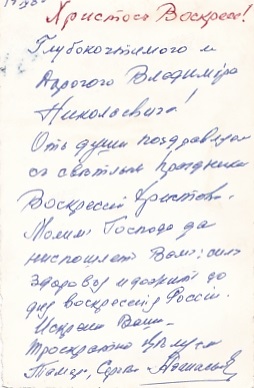 Христосъ Воскресе!
Глубокочтимого и
Дорогого Владиміра
Николаевича!
Отъ души поздравляем
съ светлым Праздником
Воскресеніе Христова.
Молимъ Господа да
ниспошлет Вамъ силъ
здоровья и дожить до
дня воскресенія Россіи.
Искренне Ваши
Троекратно цѣлуем
Тамара, Сергей